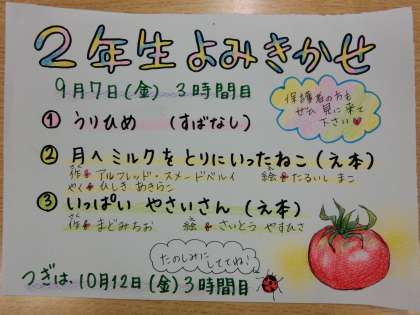 2年生よみきかせ
9月7日(金) 3時間目
保護者のおも
ぜひ 見に来て
下さい
① うりひめ (すばなし)
② 月へミルクをとりにいったねこ(え本)
作 アルフレッド・スメードベルイ 絵 たるいし まこ
やく ひしき あきらこ
③ いっぱい やさいさん (え本)
さく え
作 まどみちお 絵 さいとう やすひさ
たのしみに
しててね!
つぎは、10月12日(金)3時間目